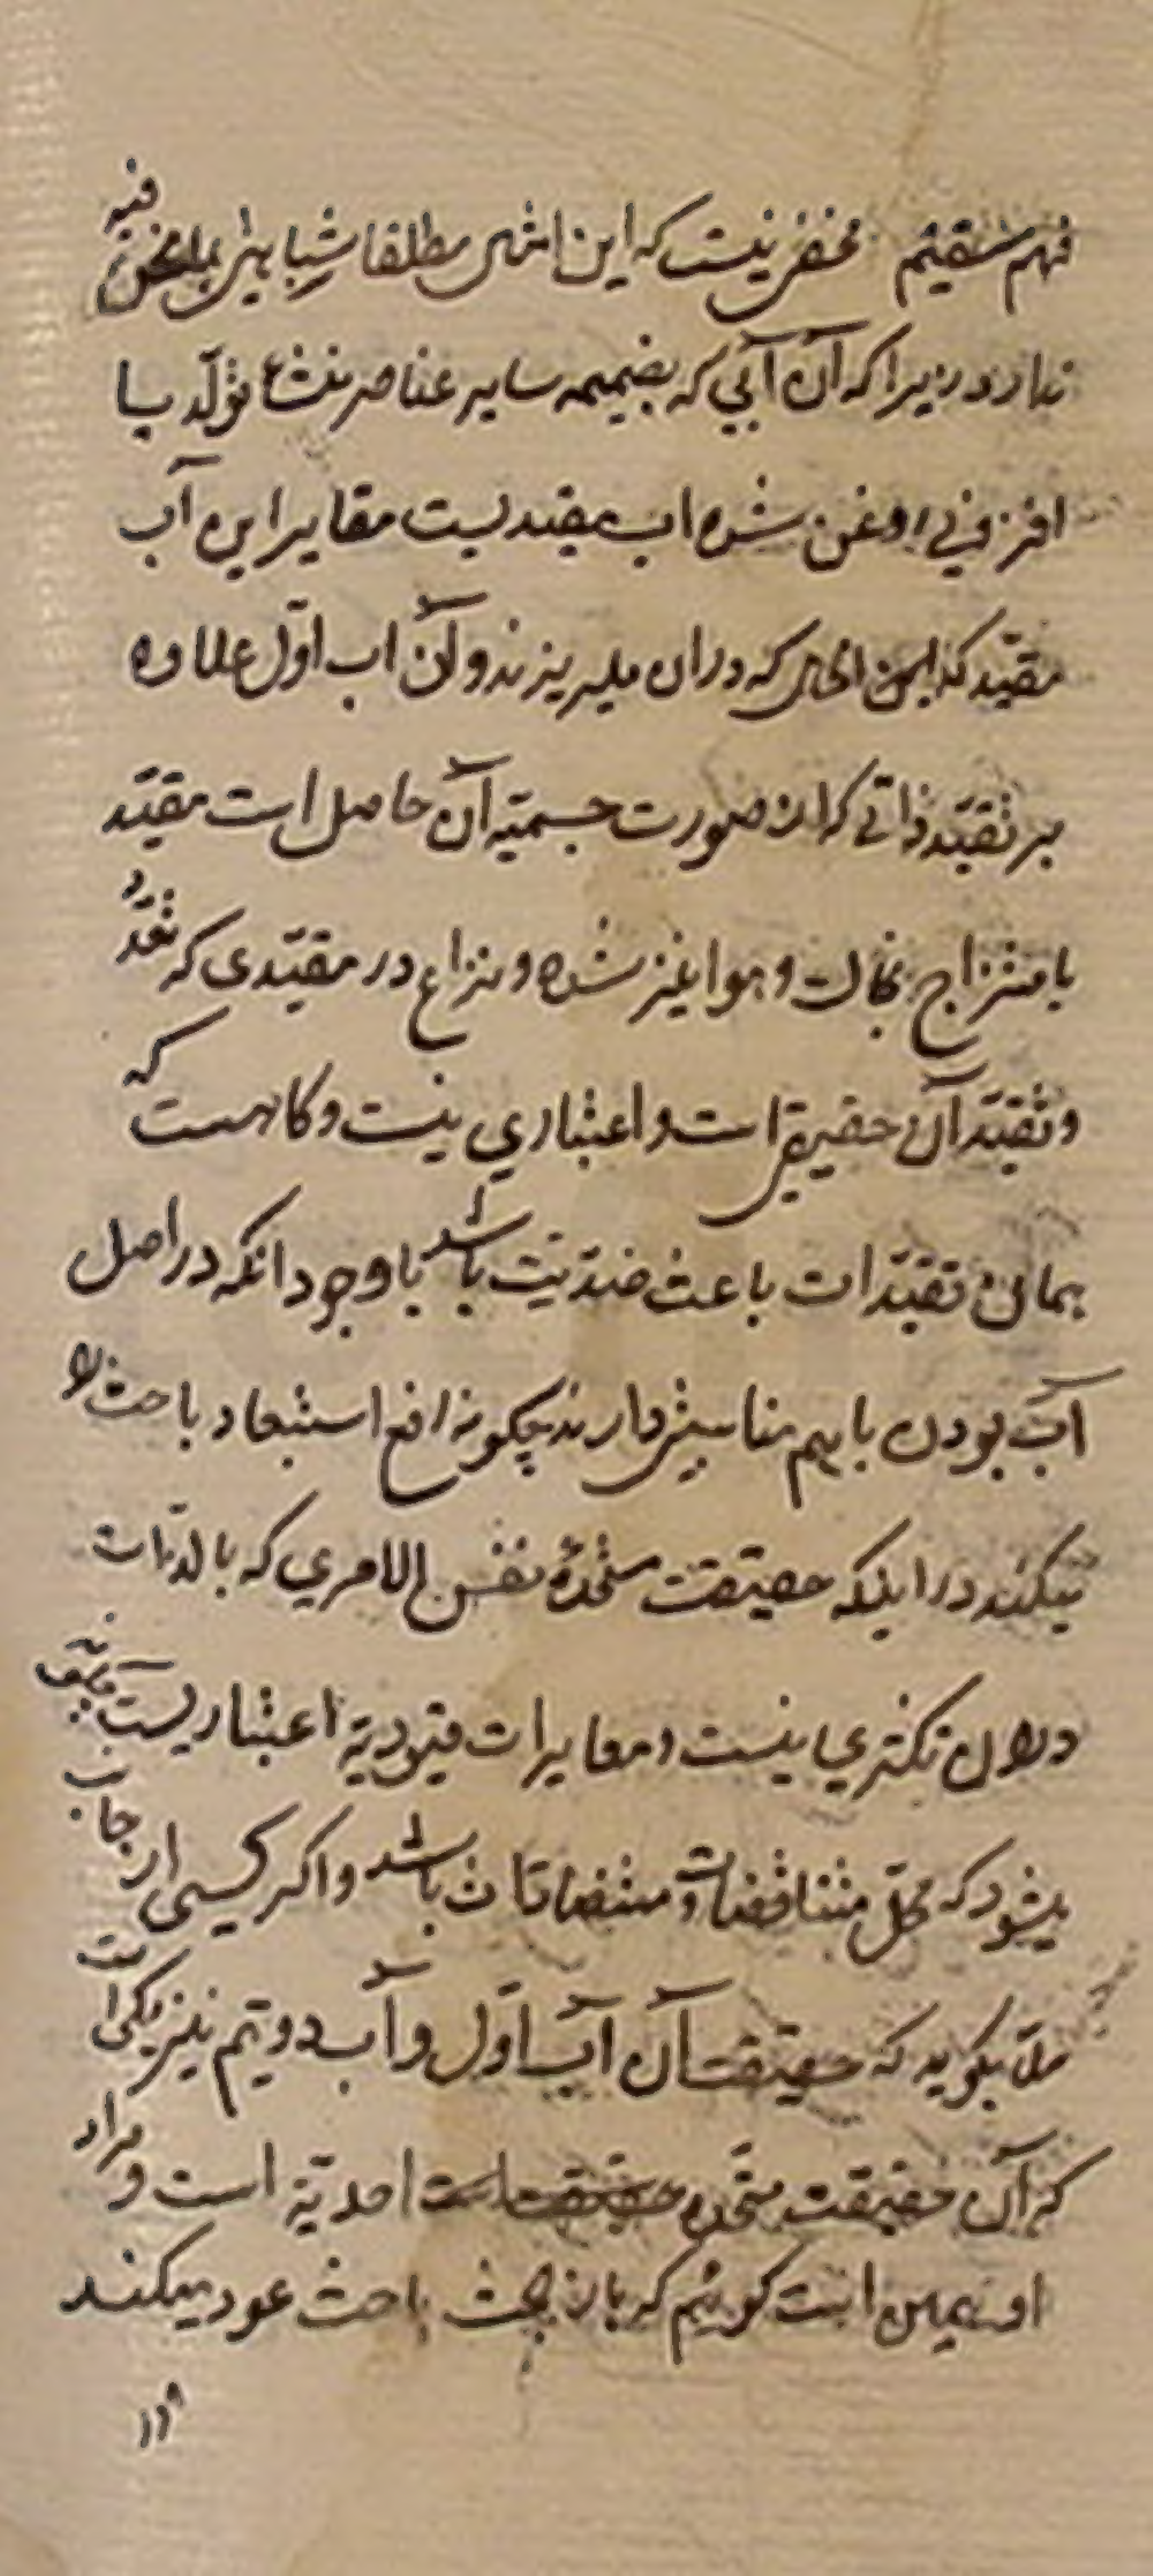 فهم مستقیم مخفی نیست که این امثال مطلقا شباهتی بما نحن فیه
ندارد زیرا که آن آبی که بضمیمه سایر عناصر منشاء تولّد
شده اب مقیدیست مقایر این آب
مقیّد که در ان میریزند و آن اب اوّل علاوه
بر تقیّد ذاتی که از صورت جسمیّه آن حاصل است مقیّد
بامتزاج خاک و هوا نیز شده و نزاع در مقیّدی که تعدّد
و تقیّد آن حقیقی است و اعتباری نیست و کاهست که
همان تقیّدات باعث ضدّیّت باشد با وجود انکه در اصل
آب بودن باهم مناسبتی دارند چکونه رافع استبعاد باحث
میکنند در اینکه حقیقت متّحدهٔ نفس الامری که بالذّات
در ان تکثری نیست و مغایرات قیودیّه اعتباریست
میشود که محلّ متناقضات و متضادات باشد و اکر کسی از جانب
ملّا بکوید که حقیقت آن آب اوّل و آب دویّم نیز یکی است
که آن حقیقت متّحده احدیّه است و مراد
او همین است کوئیم که باز بحث باحث عود میکند